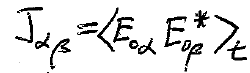 J_{αβ} = ⟨E_{0α} E^*_{0β}⟩_t